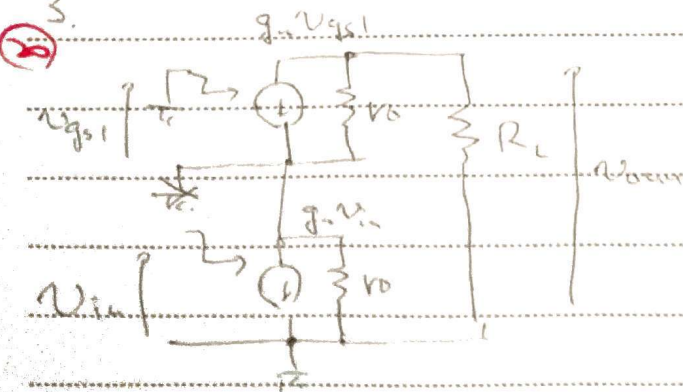 5.
gₘvgs1
vgs1
ro
RL
vout
gₘvin
vin
ro